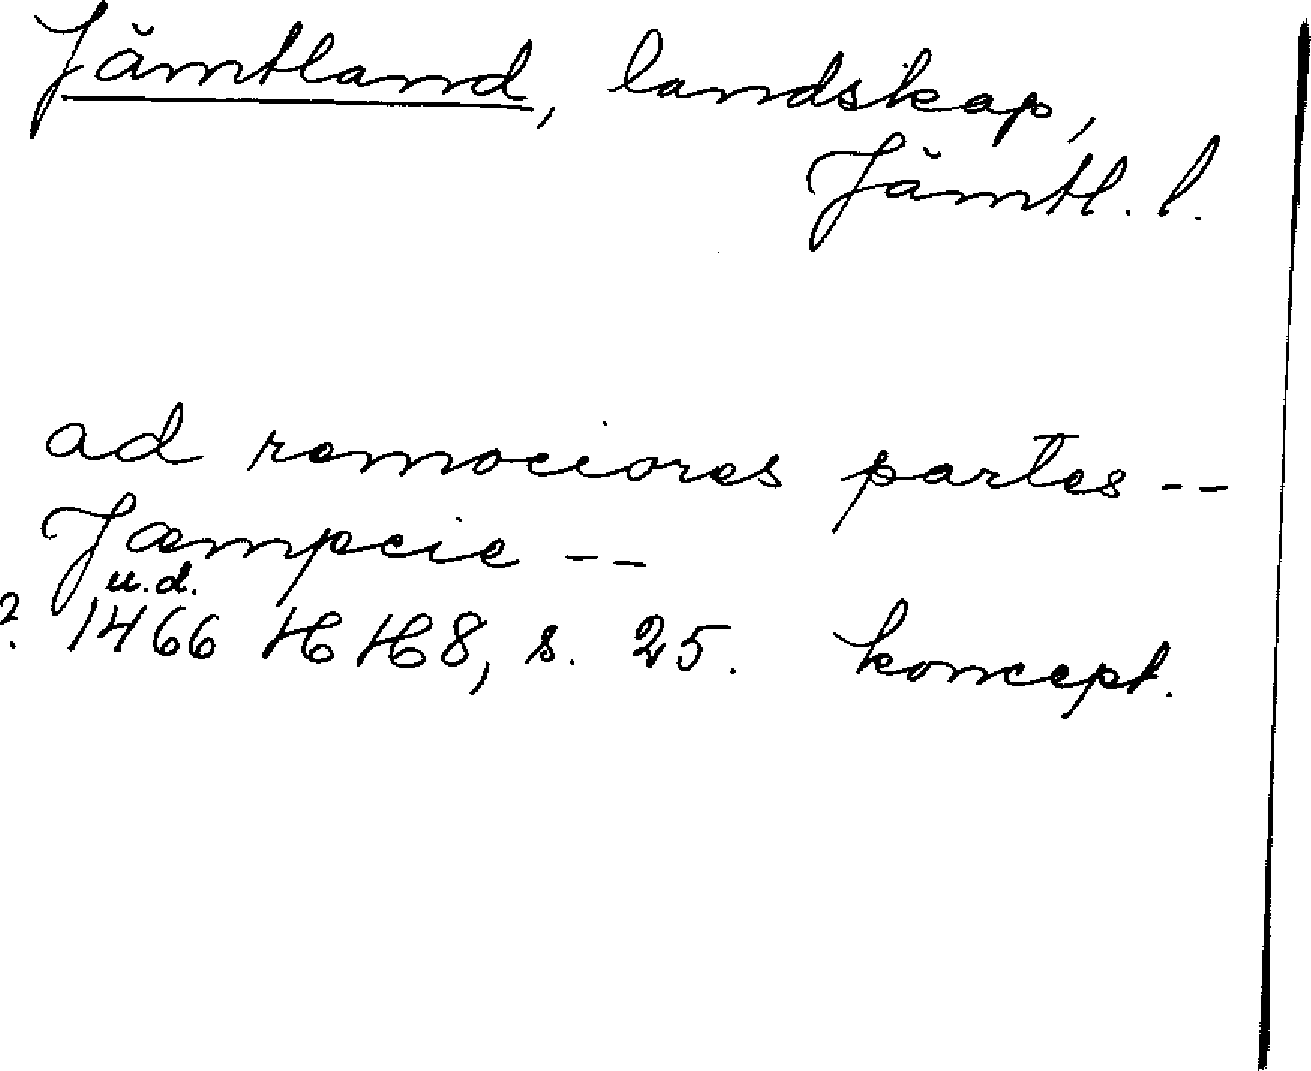 Jämtland, landskap,
Jämtl. l.
ad remociores partes --
Jæmpcie --
u.d.
? 1466 HH8, s. 25. koncept.